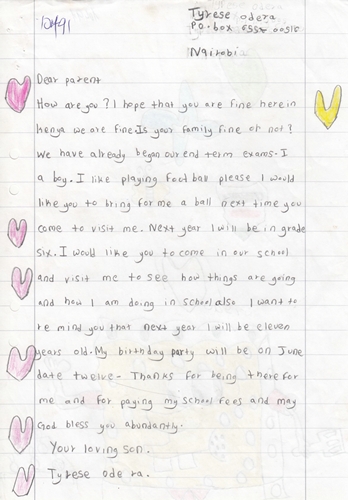 Tyrese odera
P.O. box 00515
Nairobi
Dear parent
How are you? I hope that you are fine here in
kenya we are fine. Is your family fine or not?
We have already began our end term exams. I
a boy. I like playing foot ball please I would
like you to bring for me a ball next time you
come to visit me. Next year I will be in grade
six. I would like you to come in our school
and visit me to see how things are going
and how I am doing in school also I want to
re mind you that next year I will be eleven
years old. My birthday party will be on June
date twelve- Thanks for being there for
me and for paying my school fees and may
God bless you abundantly.
Your loving son.
Tyrese ode ra.